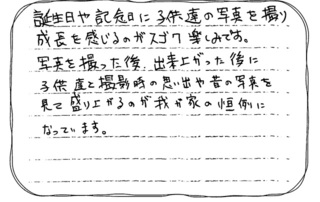 誕生日や記念日に子供達の写真を撮り
成長を感じるのがスゴク楽しみです。
写真を撮った後、出来上がった後に
子供達と撮影時の思い出や昔の写真を
見て盛り上がるのが我が家の恒例に
なっています。